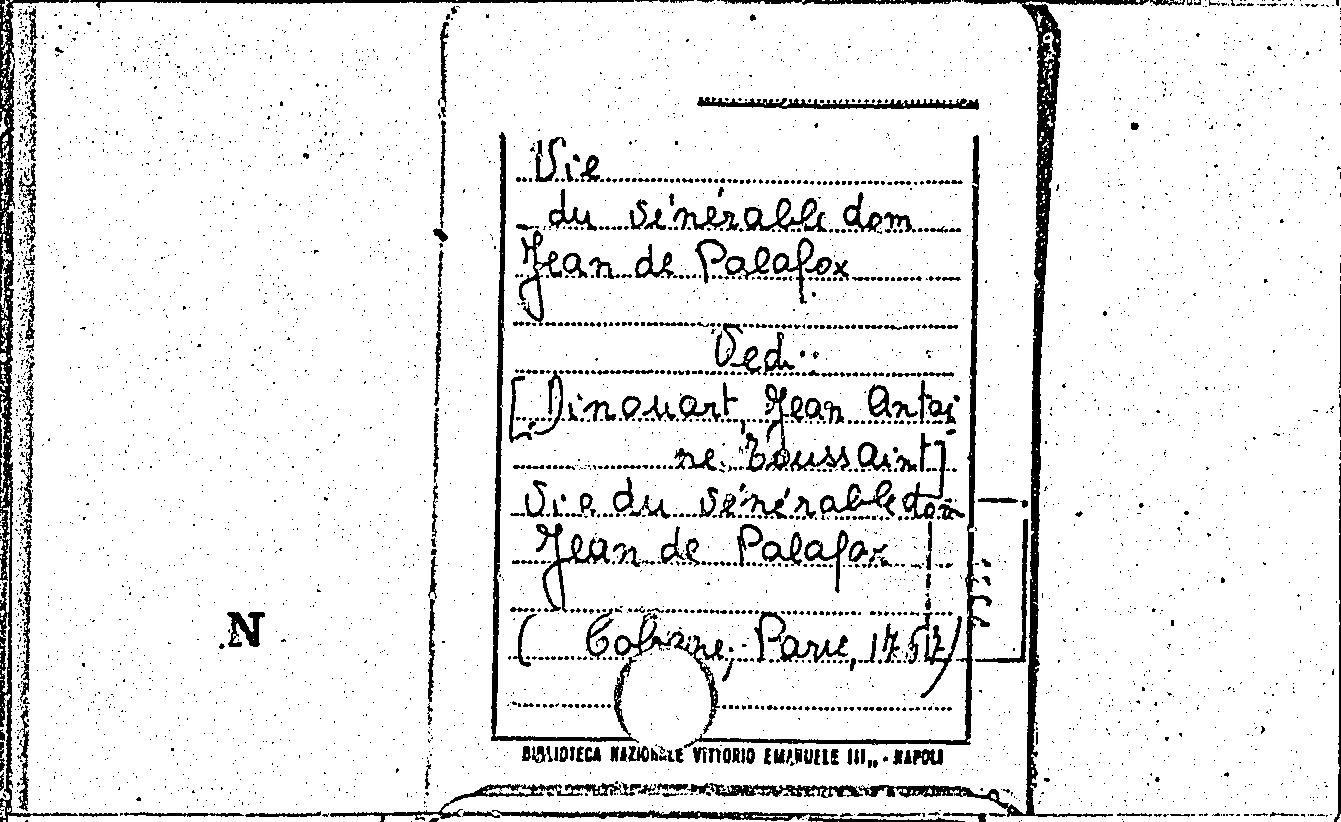 Vie
du vénérable dom
Jean de Palafox
Vedi:
[Dinouart, Jean Antoi
ne Toussaint]
Vie du vénérable dom
Jean de Palafox
( Cologne; Paris, 1767)
N
BIBLIOTECA NAZIONALE VITTORIO EMANUELE III,, - NAPOLI